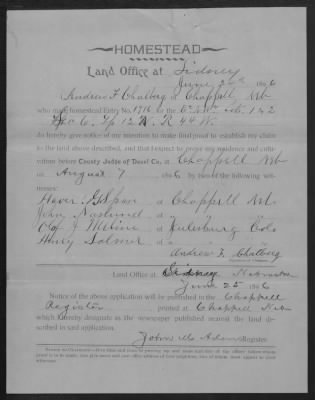 HOMESTEAD
Land Office at Sidney
June 1896
Andrew F Chalberg of Chappell, Neb
who made Homestead Entry No. for the
Sec 6, Tp 12 N, R 44 W
do hereby give notice of my intention to make final proof to establish my claim
to the land above described, and that I expect to prove my residence and culti-
vation before County Judge of Deuel Co. at Chappell Neb
on August 7 1896 by two of the following wit-
nesses:
of Chappell Neb.
John Naslund of "
Olof J of Julesburg Colo
Henry of " "
Andrew F. Chalberg
Land Office at Sidney Nebraska
June 25 1896
Notice of the above application will be published in the Chappell
Register printed at Chappell Neb
which I hereby designate as the newspaper published nearest the land de-
scribed in said application.
John M Adams Register.